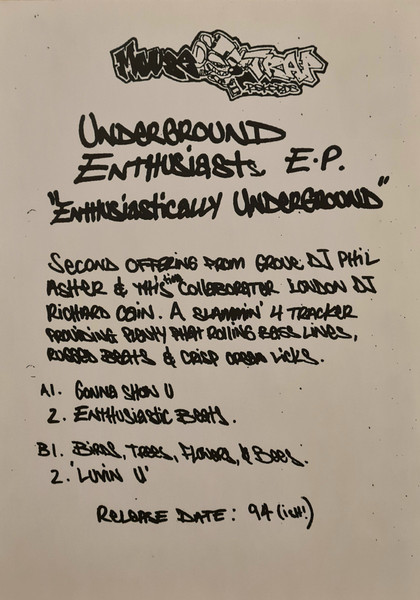 Mouse Trap
Records
UNDERGROUND
ENTHUSIASTS E.P.
"ENTHUSIASTICALLY UNDERGROUND"
SECOND OFFERING FROM GROVE DJ PHIL
ASHER & THIS time COLLABORATOR LONDON DJ
RICHARD. A SLAMMIN' 4 TRACKER
PROVIDING PLENTY PHAT ROLLING BASS LINES,
RUGGED BEATS & CRISP ORGAN LICKS.
A1. GONNA SHOW U
2. ENTHUSIASTIC BEATS.
B1. BIRDS, TREES, FLOWERS, & BEES.
2. 'LUVIN U'
RELEASE DATE: 94 (ish!)